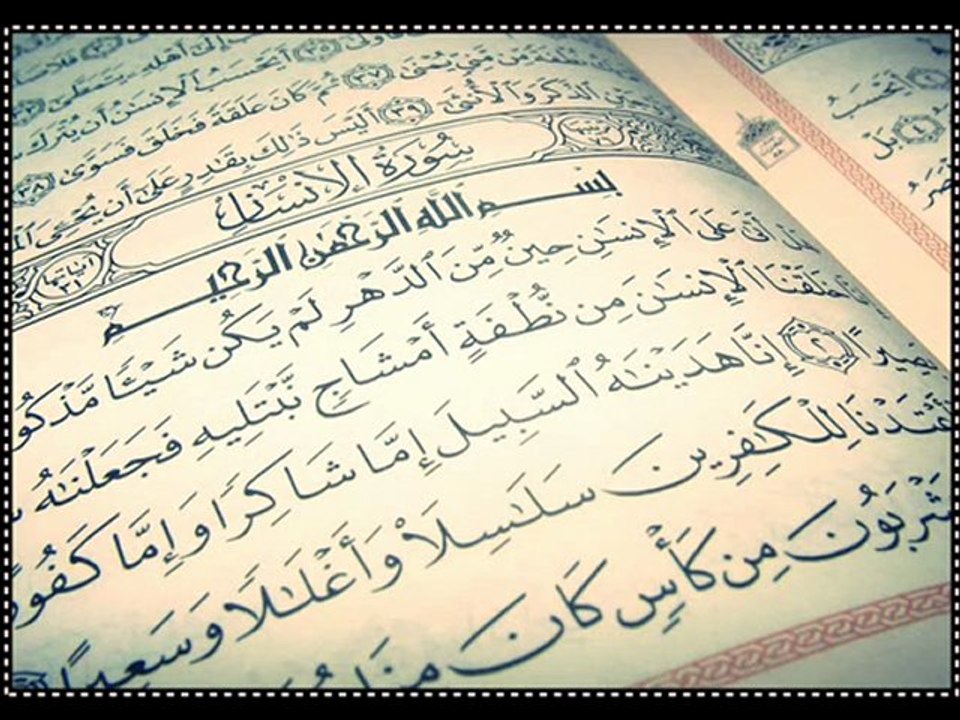 إِلَىٰٓ أَهْلِهِۦ يَتَمَطَّىٰٓ
أَيَحْسَبُ ٱلْإِنسَٰنُ أَن يُتْرَكَ
نُطْفَةً مِّن مَّنِىٍّ يُمْنَىٰ ٣٧ ثُمَّ كَانَ عَلَقَةً فَخَلَقَ فَسَوَّىٰ ٣٨
ٱلذَّكَرَ وَٱلْأُنثَىٰٓ ٣٩ أَلَيْسَ ذَٰلِكَ بِقَٰدِرٍ عَلَىٰٓ أَن يُحْـِۧىَ
سُورَةُ الإِنسَانِ
آياتها ٣١
بِسْمِ ٱللَّهِ ٱلرَّحْمَٰنِ ٱلرَّحِيمِ
هَلْ أَتَىٰ عَلَى ٱلْإِنسَٰنِ حِينٌ مِّنَ ٱلدَّهْرِ لَمْ يَكُن شَيْـًٔا مَّذْكُو
خَلَقْنَا ٱلْإِنسَٰنَ مِن نُّطْفَةٍ أَمْشَاجٍ نَّبْتَلِيهِ فَجَعَلْنَٰهُ
بَصِيرًا ٢ إِنَّا هَدَيْنَٰهُ ٱلسَّبِيلَ إِمَّا شَاكِرًا وَإِمَّا كَفُورً
أَعْتَدْنَا لِلْكَٰفِرِينَ سَلَٰسِلَا۟ وَأَغْلَٰلًا وَسَعِيرًا
شْرَبُونَ مِن كَأْسٍ كَانَ
أَيَحْسَبُ